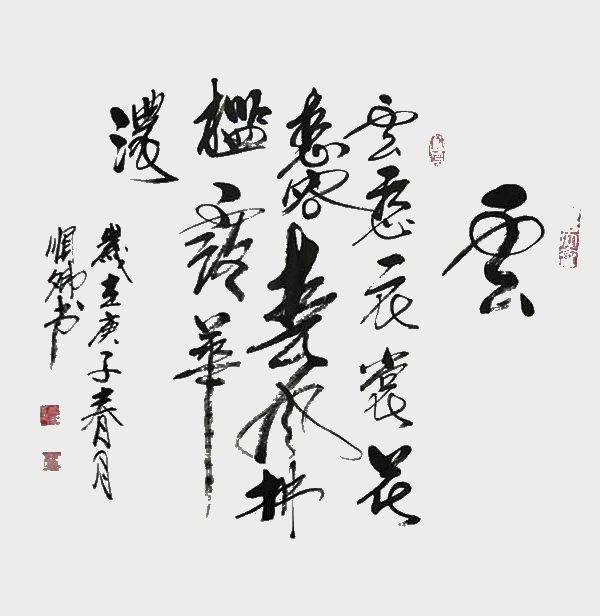 雲
雲想衣裳花
想容春風拂
檻露華
濃
歲在庚子春月
順书